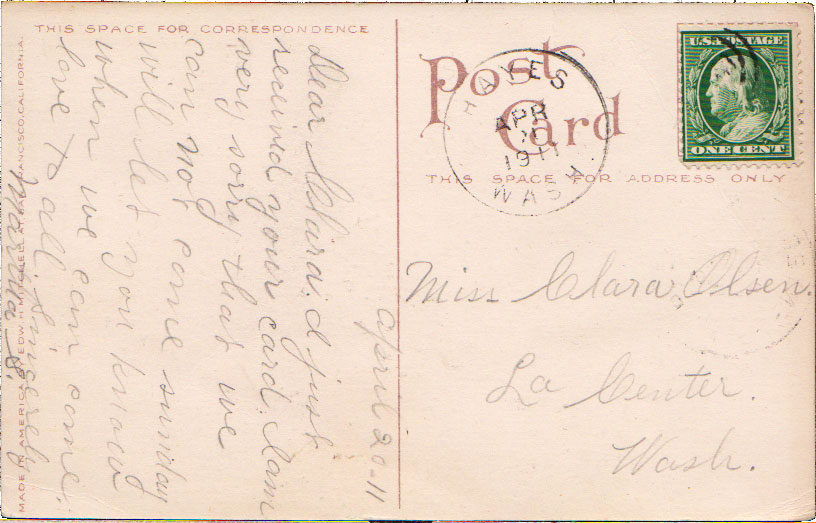 THIS SPACE FOR CORRESPONDENCE
Post
Card
THIS SPACE FOR ADDRESS ONLY
U.S. POSTAGE
ONE CENT
HAYES
APR
1911
WASH.
april 20-11
Dear Clara. I just
recieved your card. I am
very sorry that we
can not come sunday
will let you know
when we can come.
love to all Sincerely
S.
Miss Clara Olsen.
La Center.
Wash.
MADE IN AMERICA EDW. H. MITCHELL, SAN FRANCISCO, CALIFORNIA.